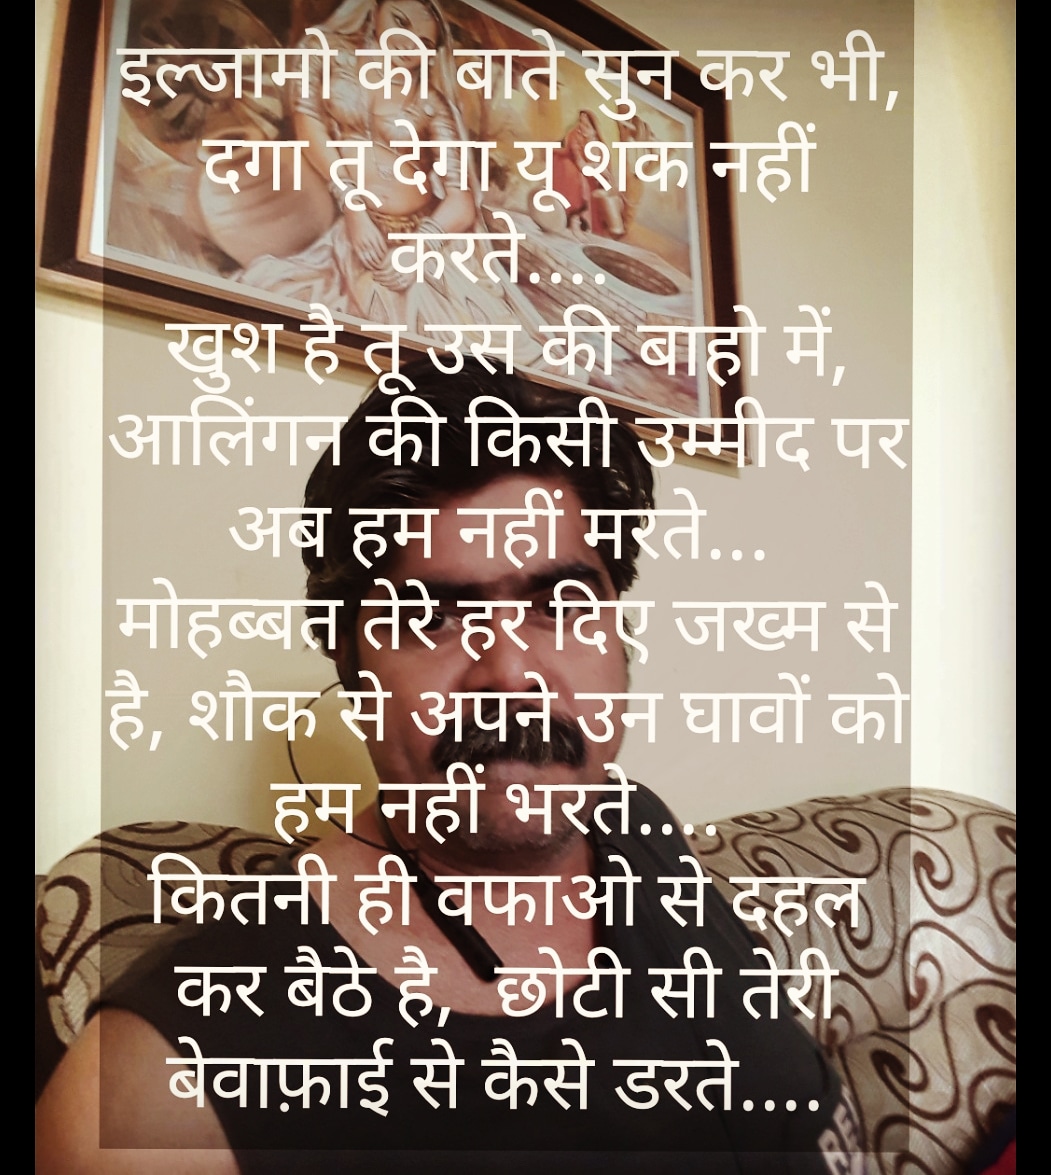 इल्जामो की बाते सुन कर भी,
दगा तू देगा यू शक नहीं
करते....
खुश है तू उस की बाहो में,
आलिंगन की किसी उम्मीद पर
अब हम नहीं मरते...
मोहब्बत तेरे हर दिए जख्म से
है, शौक से अपने उन घावों को
हम नहीं भरते....
कितनी ही वफाओ से दहल
कर बैठे है,  छोटी सी तेरी
बेवाफ़ाई से कैसे डरते....